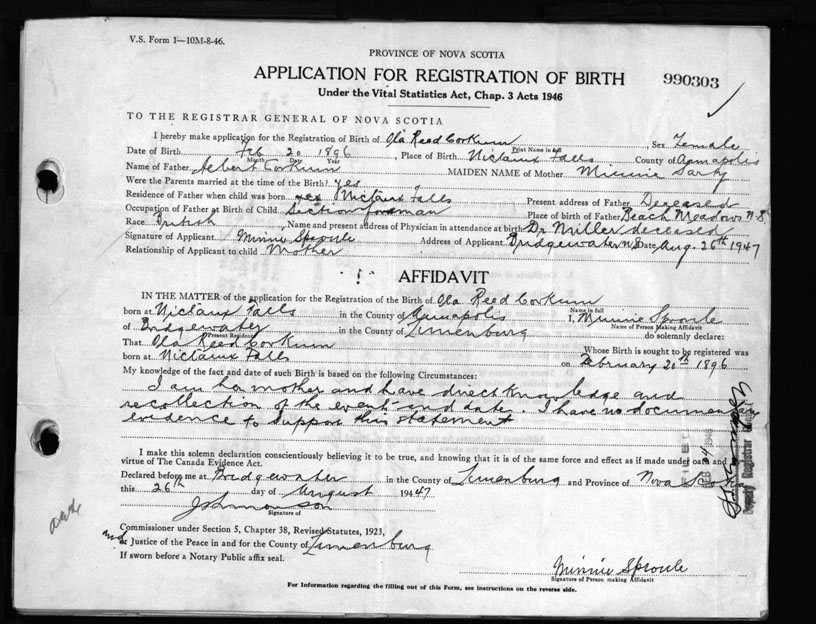 V.S. Form 1—10M-8-46.
PROVINCE OF NOVA SCOTIA
APPLICATION FOR REGISTRATION OF BIRTH 990303
Under the Vital Statistics Act, Chap. 3 Acts 1946
TO THE REGISTRAR GENERAL OF NOVA SCOTIA
I hereby make application for the Registration of Birth of Ola Reed Corkum, Sex Female
Print Name in full
Date of Birth Feb 20 1896, Place of Birth Nictaux Falls County of Annapolis
Month Day Year
Name of Father Albert Corkum MAIDEN NAME of Mother Minnie
Were the Parents married at the time of the Birth? yes
Residence of Father when child was born yes Nictaux Falls Present address of Father Deceased
Occupation of Father at Birth of Child Section foreman Place of birth of Father Beach Meadows N.S.
Race British Name and present address of Physician in attendance at birth Dr Miller deceased
Signature of Applicant Minnie Sproule Address of Applicant Bridgewater NS Date Aug. 26th 1947
Relationship of Applicant to child Mother
AFFIDAVIT
IN THE MATTER of the application for the Registration of the Birth of Ola Reed Corkum
Name in full
born at Nictaux Falls in the County of Annapolis I, Minnie Sproule
Name of Person Making Affidavit
of Bridgewater in the County of Lunenburg do solemnly declare:
Present Residence
That Ola Reed Corkum Whose Birth is sought to be registered was
born at Nictaux Falls on February 20th 1896
My knowledge of the fact and date of such Birth is based on the following Circumstances:
I am her mother and have direct knowledge and
recollection of the event and date. I have no documentary
evidence to support this statement
I make this solemn declaration conscientiously believing it to be true, and knowing that it is of the same force and effect as if made under oath and
virtue of The Canada Evidence Act.
Declared before me at Bridgewater in the County of Lunenburg and Province of Nova Scotia
this 26th day of August 1947
Signature of
Commissioner under Section 5, Chapter 38, Revised Statutes, 1923,
and or Justice of the Peace in and for the County of Lunenburg
If sworn before a Notary Public affix seal.
Minnie Sproule
Signature of Person making Affidavit
For Information regarding the filling out of this Form, see instructions on the reverse side.
Deputy Registrar